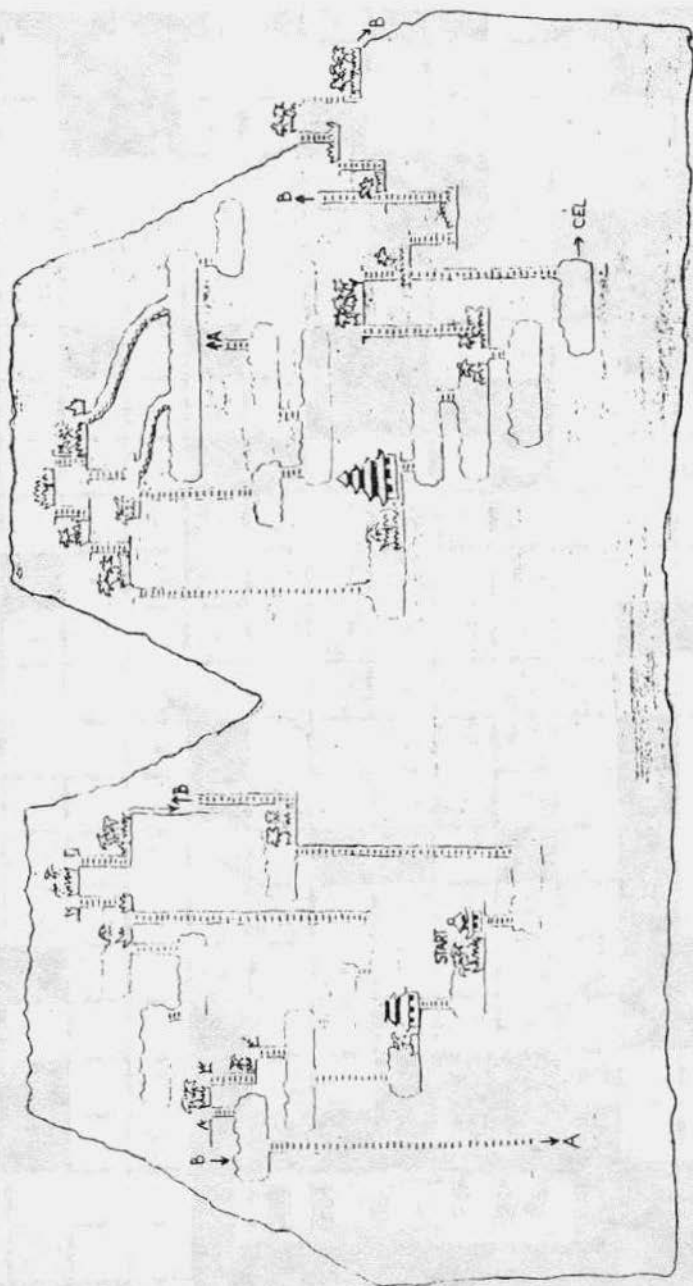 B
B
CEL
A
B
START
B
A